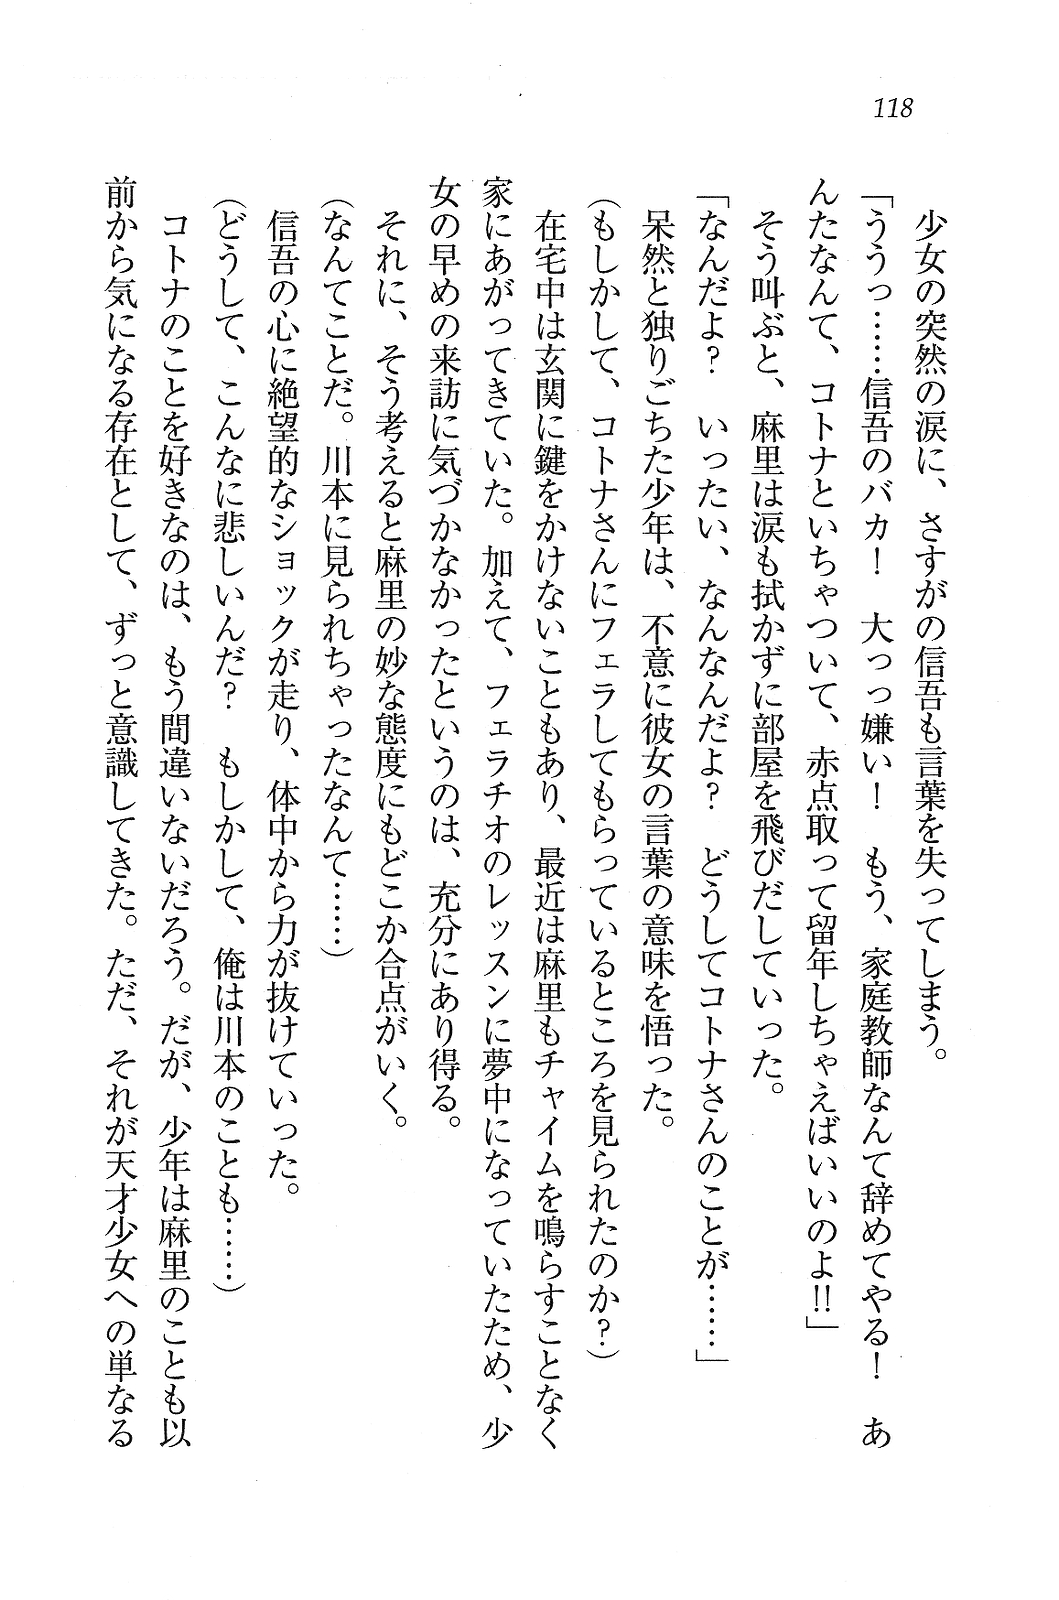 118
少女の突然の涙に、さすがの信吾も言葉を失ってしまう。
「ううっ……信吾のバカ！　大っっ嫌い！　もう、家庭教師なんて辞めてやる！　あ
んたなんて、コトナといちゃついて、赤点取って留年しちゃえばいいのよ!!」
そう叫ぶと、麻里は涙も拭かずに部屋を飛びだしていった。
「なんだよ？　いったい、なんなんだよ？　どうしてコトナさんのことが……」
呆然と独りごちた少年は、不意に彼女の言葉の意味を悟った。
（もしかして、コトナさんにフェラしてもらっているところを見られたのか？）
在宅中は玄関に鍵をかけないこともあり、最近は麻里もチャイムを鳴らすことなく
家にあがってきていた。加えて、フェラチオのレッスンに夢中になっていたため、少
女の早めの来訪に気づかなかったというのは、充分にあり得る。
それに、そう考えると麻里の妙な態度にもどこか合点がいく。
（なんてことだ。川本に見られちゃったなんて……）
信吾の心に絶望的なショックが走り、体中から力が抜けていった。
（どうして、こんなに悲しいんだ？　もしかして、俺は川本のことも……）
コトナのことを好きなのは、もう間違いないだろう。だが、少年は麻里のことも以
前から気になる存在として、ずっと意識してきた。ただ、それが天才少女への単なる